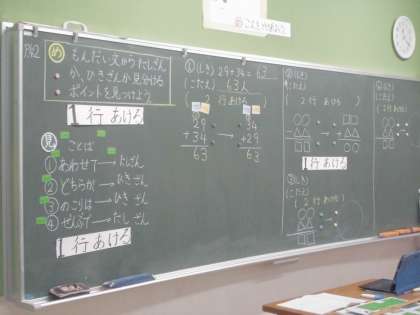 P.62
め もんだい文からたしざん
か、ひきざんか見分ける
ポイントを見つけよう。
1行あける
見 ことば
①あわせて→たしざん
②どちらが→ひきざん
③のこりは→ひきざん
④ぜんぶで→たしざん
1行あける
(しき) 29+34=63
(こたえ) 63人
(2行あける)
29
+34
63
→
34
+29
63
②(しき)
(こたえ)
(2行あける)
→
1行あける
③(しき)
(こたえ)
(2行あける)
(しき)
(こたえ)